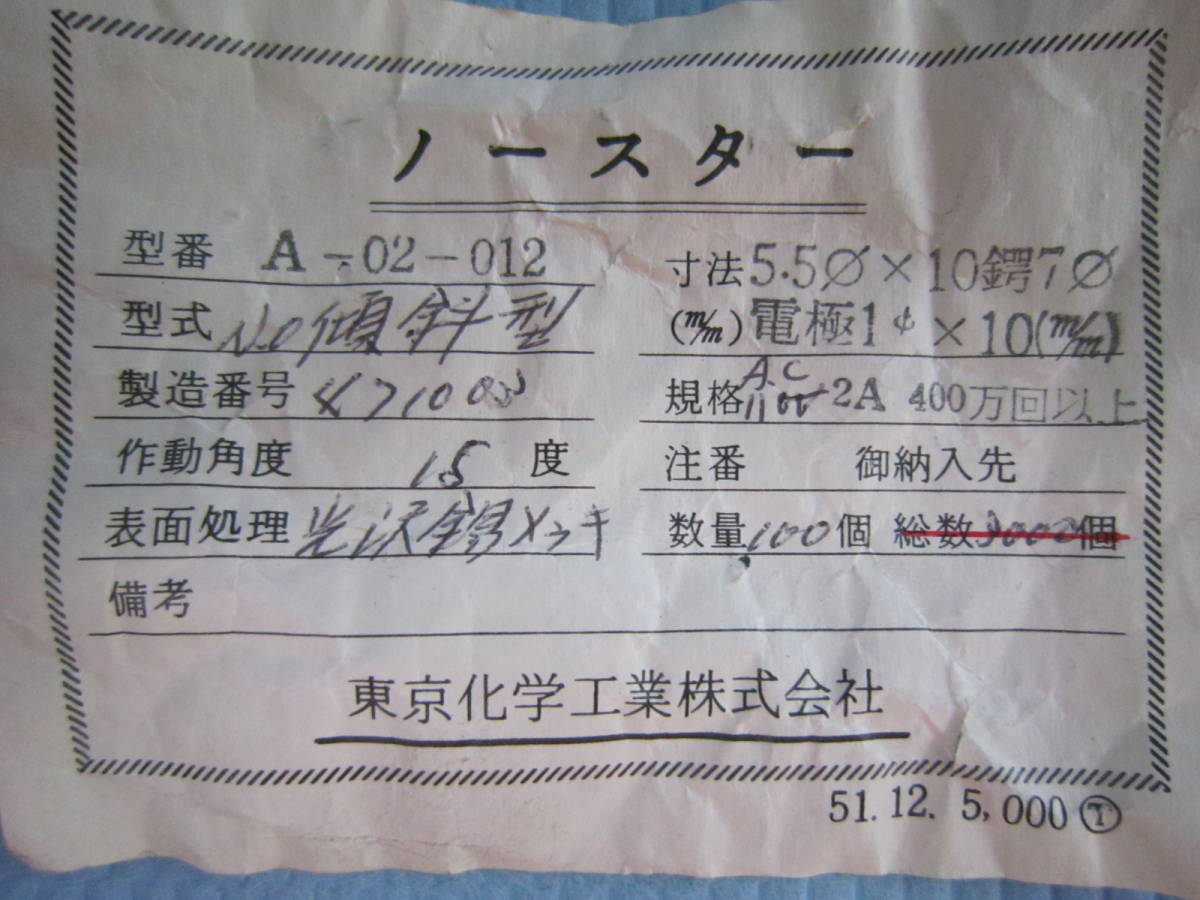 ノースター
型番 A-02-012
型式 N.O傾斜型
製造番号
作動角度 15 度
表面処理 光沢錫メッキ
寸法 5.5∅×10鍔7∅
(m/m) 電極1¢×10(m/m)
規格 AC 2A 400万回以上
注番 御納入先
数量 100個 総数3000個
備考
東京化学工業株式会社
51.12. 5,000 Ⓣ